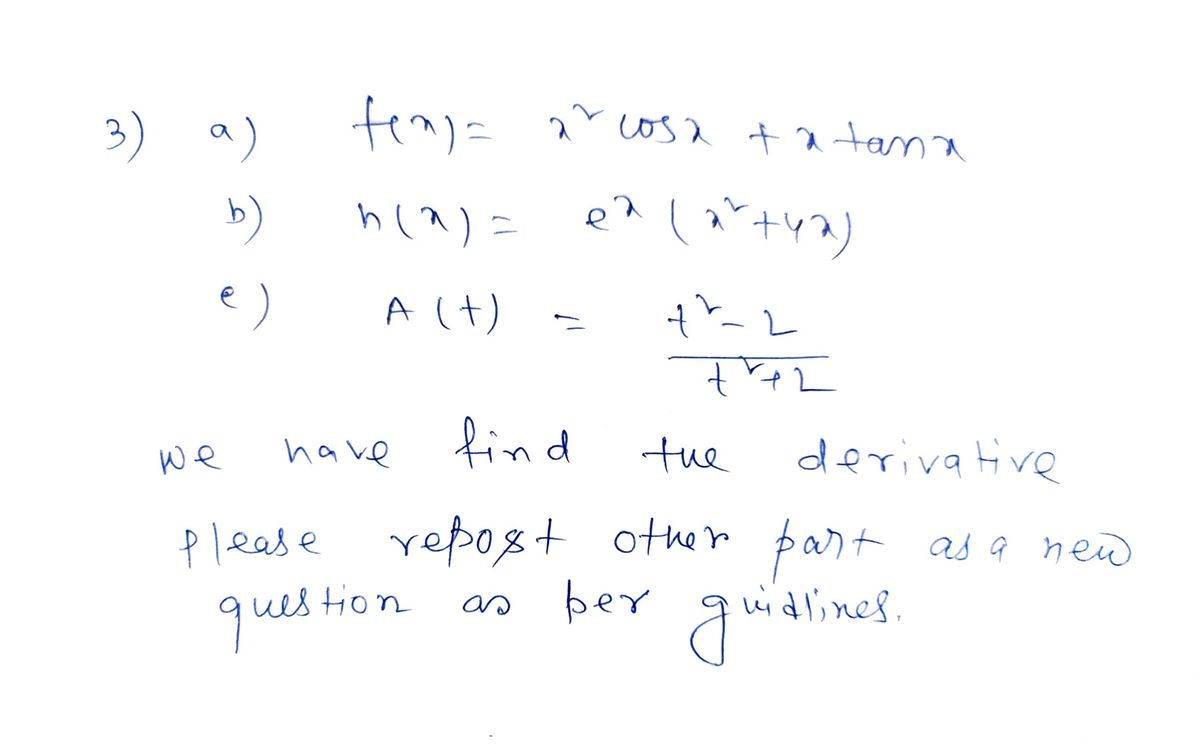 3) a) f(x) = x² cosx + x tanx
b) h(x) = eˣ (x²+4x)
e) A(t) = t²-2
t²+2
we have find the derivative
please repost other part as a new
question as per guidlines.